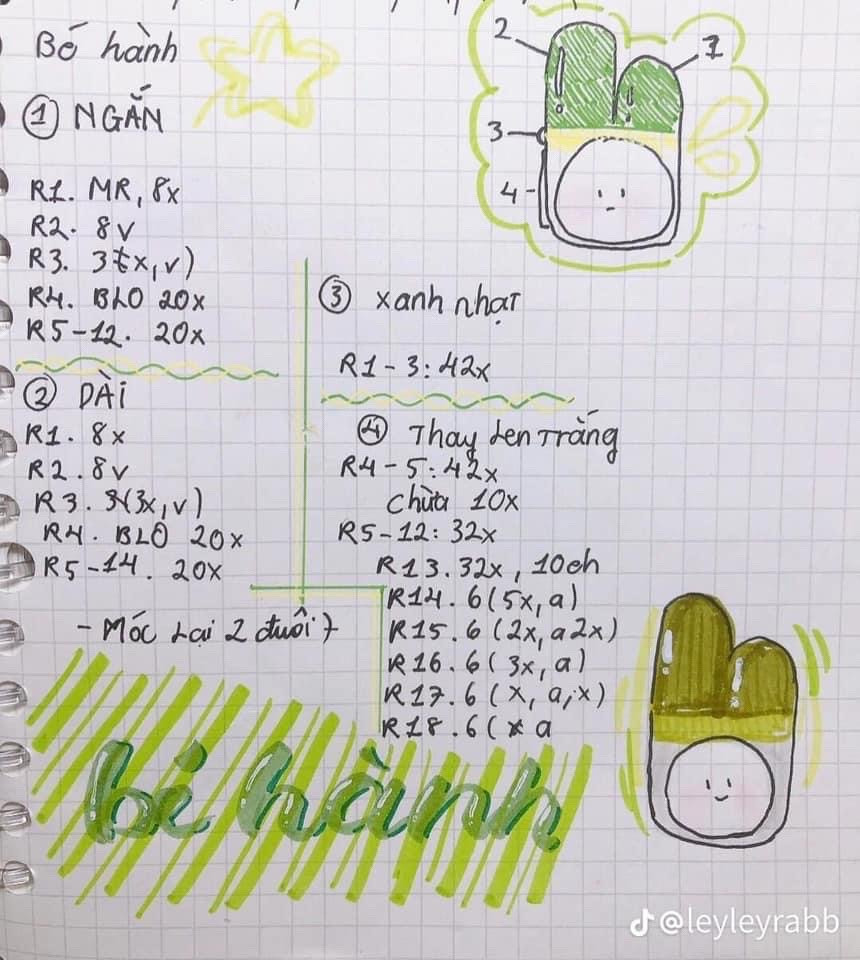 Bé hành
① NGẮN
R1. MR, 8x
R2. 8v
R3. 3(x, v)
R4. BLO 20x
R5-12. 20x
② DÀI
R1. 8x
R2. 8v
R3. (3x, v)
R4. BLO 20x
R5-14. 20x
- Móc lại 2 đuôi
③ xanh nhạt
R1-3: 42x
④ Thay len trắng
R4-5: 42x
chừa 10x
R5-12: 32x
R13. 32x, 10ch
R14. 6(5x, a)
R15. 6(2x, a2x)
R16. 6(3x, a)
R17. 6(x, a, x)
R18. 6(x a
2
1
3
4
bé hành
@leyleyrabb